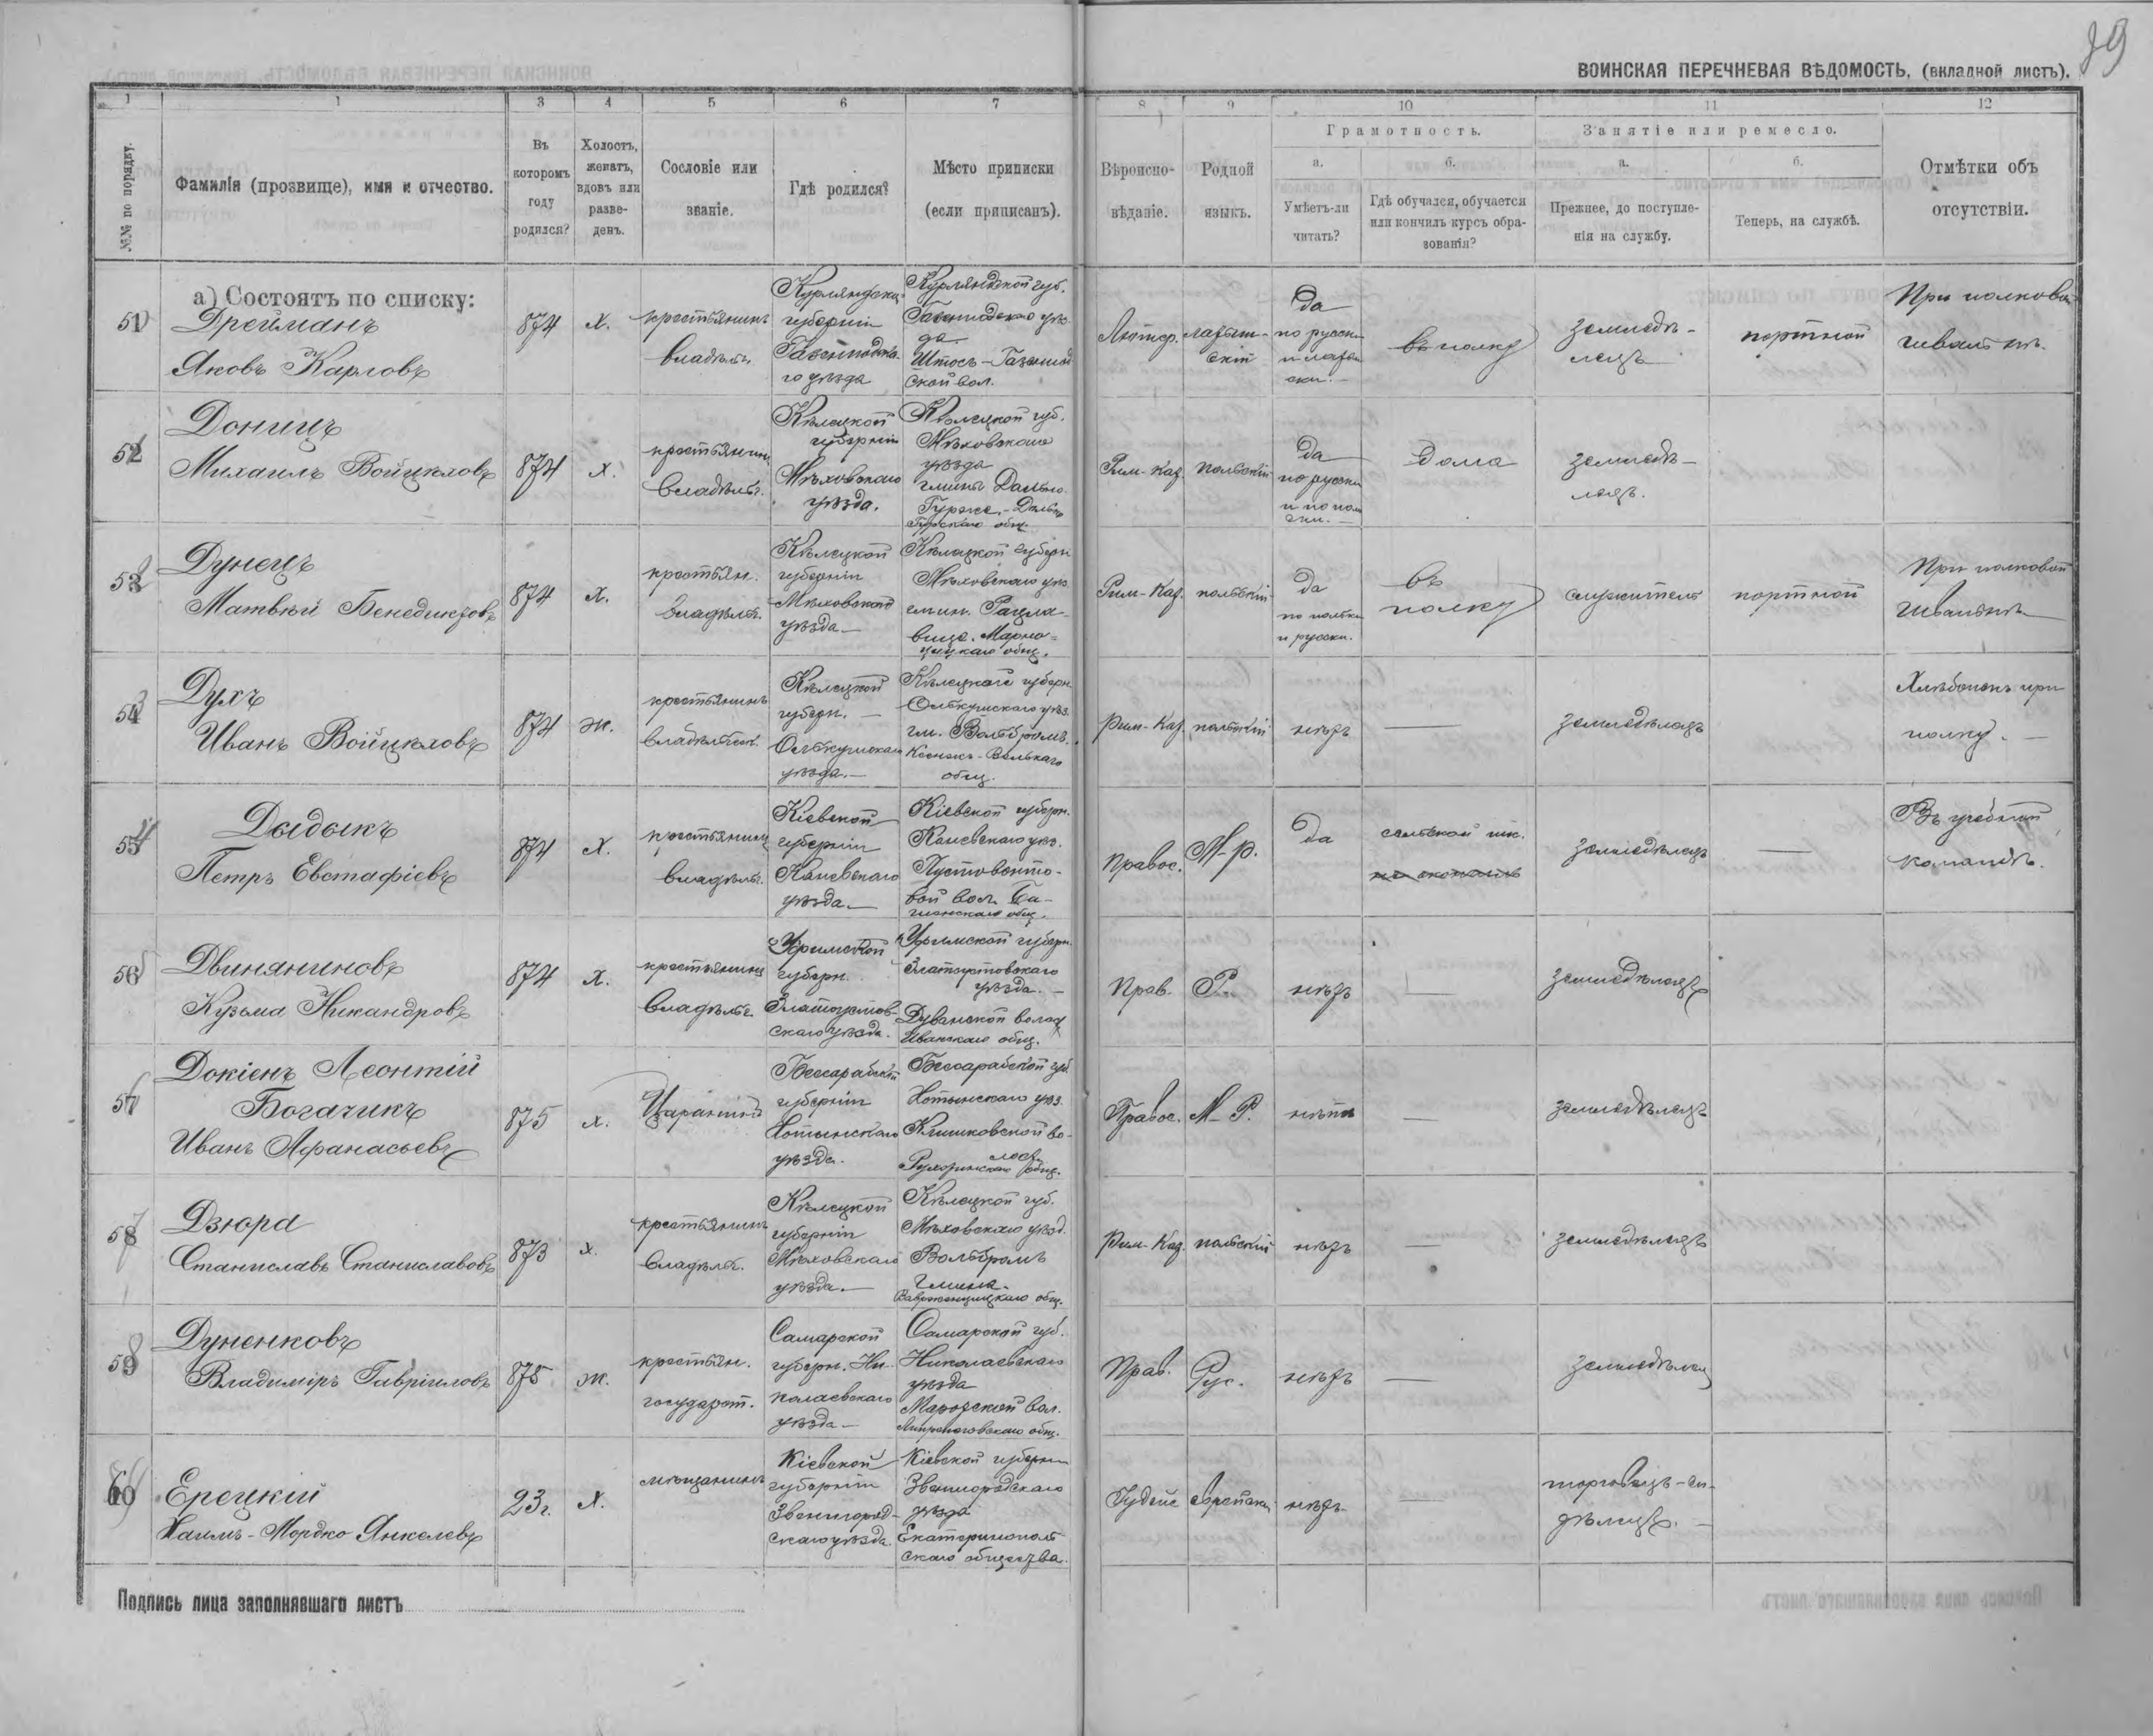 89
ВОИНСКАЯ ПЕРЕЧНЕВАЯ ВѢДОМОСТЬ. (вкладной листъ).
1 1 3 4 5 6 7 8 9 10 11 12
№№ по порядку.
Фамилія (прозвище), имя и отчество.
Въ которомъ году родился?
Холостъ, женатъ, вдовъ или разведенъ.
Сословіе или званіе.
Гдѣ родился?
Мѣсто приписки (если приписанъ).
Вѣроисповѣданіе.
Родной языкъ.
Грамотность.
а. Умѣетъ-ли читать?
б. Гдѣ обучался, обучается или кончилъ курсъ образованія?
Занятіе или ремесло.
а. Прежнее, до поступленія на службу.
б. Теперь, на службѣ.
Отмѣтки объ отсутствіи.
а) Состоятъ по списку:
Дрейманъ
Яковъ Карловъ
874
х.
крестьянинъ
владѣлъ.
Курляндской
губерніи
го уѣзда
Курляндской губ.
ской вол.
Лютер.
латыш-
скій
Да
по русски
въ полку
земледѣ-
лецъ
портной
При полковой
швальнѣ.
52
Дониць
Михаилъ Войцеховъ
874
х.
крестьянинъ
владѣлъ.
Кѣлецкой
губерніи
Мѣховскаго
уѣзда.
Кѣлецкой губ.
Мѣховскаго
уѣзда
гмины
общ.
Рим-Кат.
польскій
Да
по русски
дома
земледѣ-
лецъ.
53
Дунецъ
Матвѣй Бенедиктовъ
874
х.
крестьян.
владѣлъ.
Кѣлецкой
губерніи
Мѣховскаго
уѣзда
Кѣлецкой губерн
Мѣховскаго уѣз.
гмин. Рацла-
вице.
общ.
Рим-Кат.
польскій
да
по польски
и русски.
въ
полку
служитель
портной
При полковой
швальнѣ
54
Духъ
Иванъ Войцеховъ
874
ж.
крестьянинъ
Кѣлецкой
губерн.
Олькушскаго
уѣзда.
Кѣлецкаго губерн
Олькушскаго уѣз.
гм. Вольбромъ.
общ.
Рим-Кат.
польскій
нѣтъ
земледѣлецъ
Хлѣбопекъ при
полку.
Дыдыкъ
Петръ Евстафіевъ
874
х.
крестьянинъ
владѣлъ.
Кіевской
губерніи
Каневскаго
уѣзда
Кіевской губерн.
Каневскаго уѣз.
Пустовойто-
вой вол.
общ.
Правос.
М-р.
Да
сельской шк.
не окончилъ
земледѣлецъ
Въ учебной
командѣ.
56
Двиняниновъ
Кузьма Никандровъ
874
х.
крестьянинъ
владѣлъ.
Уфимской
губерн.
Златоустов-
скаго уѣзда.
Уфимской губерн.
Златоустовскаго
уѣзда.
Дуванской волост
общ.
Прав.
Р.
нѣтъ
земледѣлецъ
57
Докіенъ Леонтій
Богачикъ
Иванъ Афанасьевъ
875
х.
Царанинъ
Бессарабской
губерніи
Хотинскаго
уѣзда.
Бессарабской губ.
Хотинскаго уѣз.
Клишковской во-
лости
общ.
Правос.
М-Р.
нѣтъ
земледѣлецъ
58
Дзюра
Станиславъ Станиславовъ
873
х.
крестьянинъ
владѣлъ.
Кѣлецкой
губерніи
Мѣховскаго
уѣзда.
Кѣлецкой губ.
Мѣховскаго уѣзд.
Вольбромъ
гмина
общ.
Рим-Кат.
польскій
нѣтъ
земледѣлецъ
59
Дуненковъ
Владиміръ Гавріиловъ
875
ж.
крестьян.
государст.
Самарской
губерн. Ни-
колаевскаго
уѣзда
Самарской губ.
Николаевскаго
уѣзда
вол.
общ.
Прав.
Рус.
нѣтъ
земледѣлец
60
Ерецкій
Хаимъ-Мордко Янкелевъ
23г.
х.
мѣщанинъ
Кіевской
губерніи
Звенигород-
скаго уѣзда.
Кіевской губерни
Звенигородскаго
уѣзда
Екатеринополь
скаго общества.
Іудейс
еврейски
нѣтъ
торговецъ-си-
дѣлецъ.
Подпись лица заполнявшаго листъ